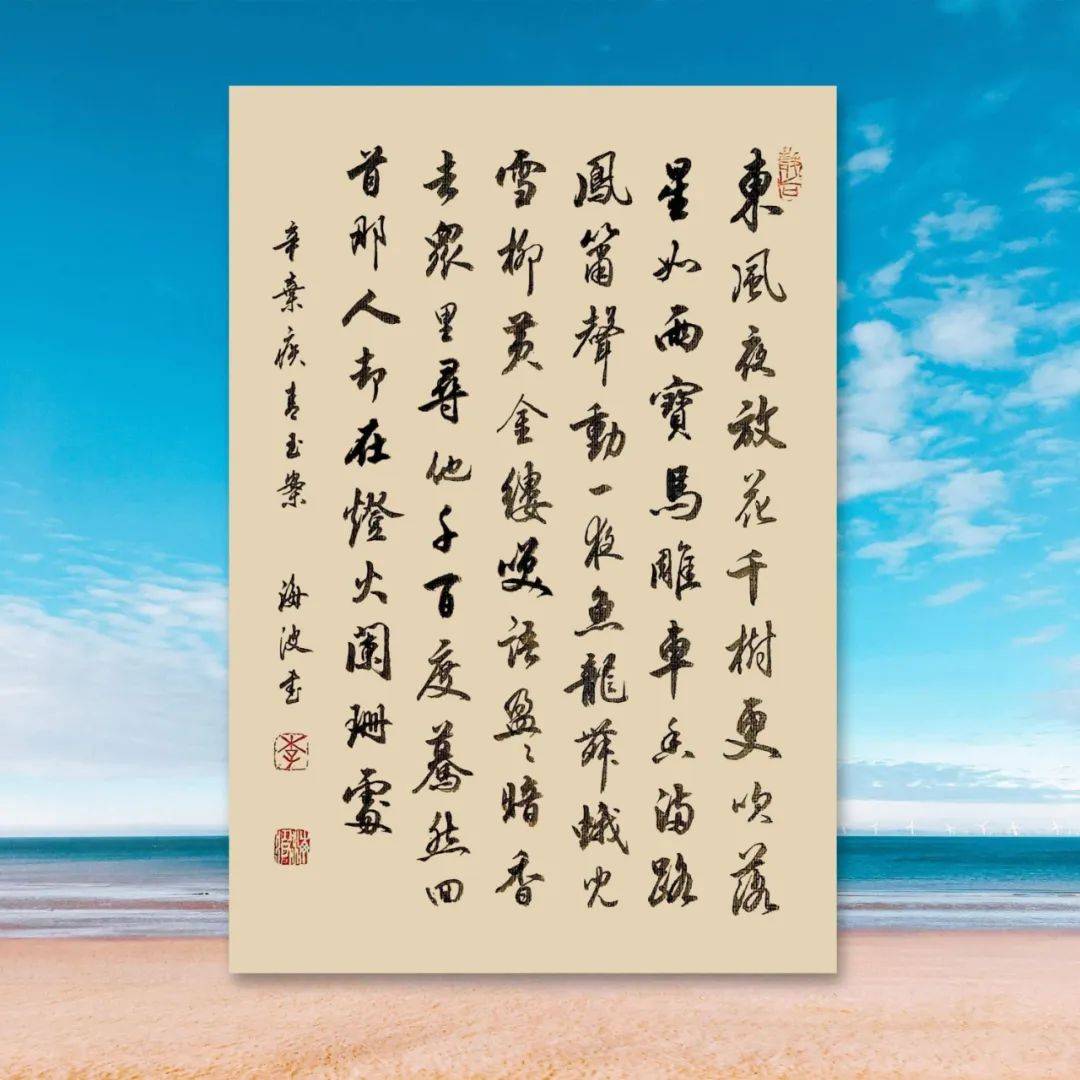 東風夜放花千樹更吹落
星如雨寶馬雕車香滿路
鳳簫聲動一夜魚龍舞蛾兒
雪柳黄金縷咲語盈々暗香
去衆里尋他千百度驀然回
首那人却在燈火闌珊處
辛棄疾青玉案 海波書
李